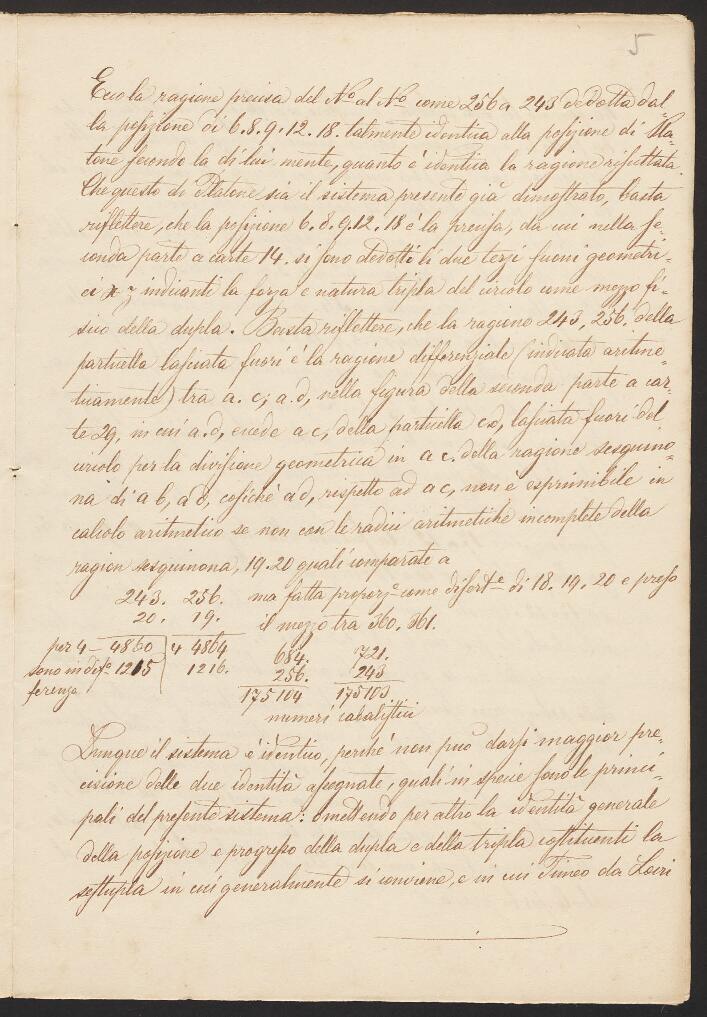 5
Ecco la ragione precisa del N.º al N.º come 256 a 243 dedotta dal
la posizione di 6. 8. 9. 12. 18. talmente identica alla posizione di Pla-
tone secondo la di lui mente, quanto è identica la ragione risultata.
Che questo di Platone sia il sistema presente già dimostrato, basta
riflettere, che la posizione 6. 8. 9. 12. 18 è la precisa, da cui nella se-
conda parte a carte 14. si sono dedotti li due terzi suoni geometri-
ci x z indicanti la forza e natura tripla del circolo come mezzo fi-
sico della dupla. Basta riflettere, che la ragione 243, 256. della
particella lasciata fuori è la ragione differenziale (indicata aritme-
ticamente) tra a. c; a. d, nella figura della seconda parte a car-
te 29, in cui a. d, excede a c, della particella c d, lasciata fuori del
circolo per la divisione geometrica in a c. della ragione sesquino-
na di a b, a d, cosiché a d, rispetto ad a c, non è esprimibile in
calcolo aritmetico se non con le radici aritmetiche incomplete della
ragion sesquinona, 19. 20 quali comparate a
243. 256. ma fatta proporz.e come disert.e di 18. 19. 20 e preso
20. 19. il mezzo tra 360. 361.
per 4 – 4860 4 4864 684. 721.
sono in dif.a 1215 1216. 256. 243
ferenza 175104 175103
numeri cabalistici
Dunque il sistema è identico, perché non può darsi maggior pre-
cisione delle due identità assegnate, quali in specie sono le princi-
pali del presente sistema: omettendo per altro la identità generale
della posizione e progresso della dupla e della tripla costituenti la
settupla in cui generalmente si conviene, e in cui Timeo da Locri